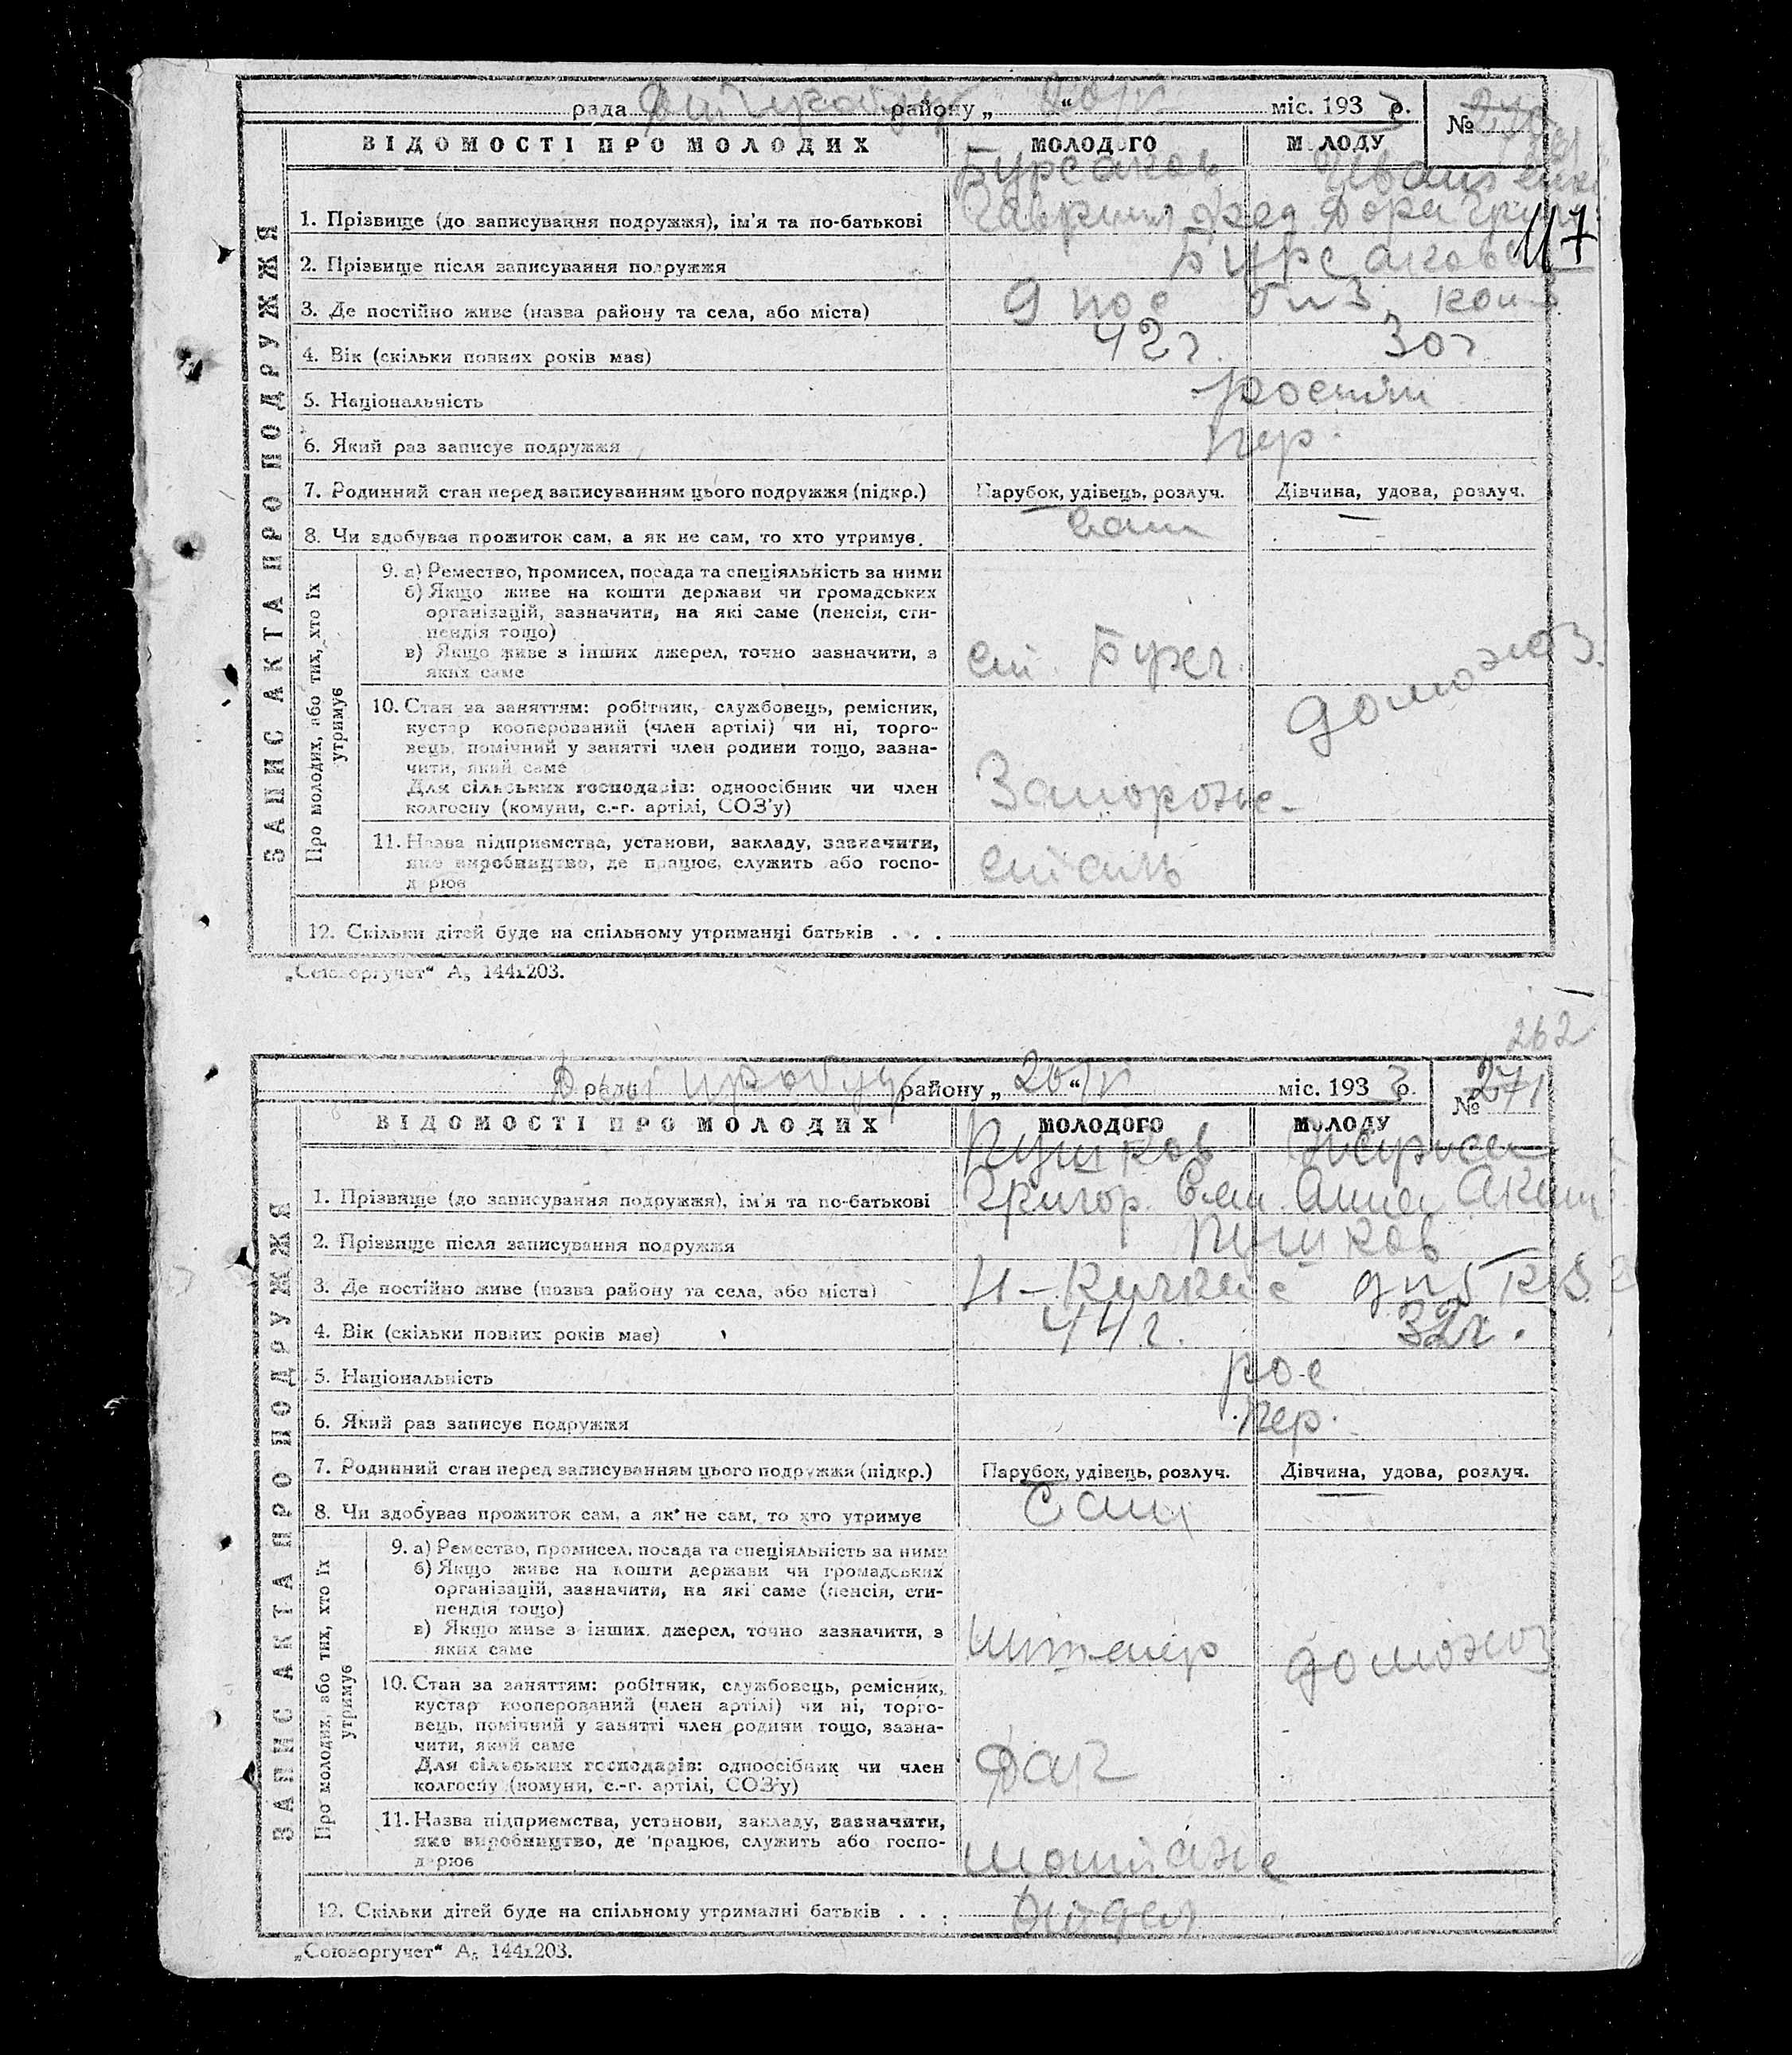 рада района „ 20/IV “ міс. 193 3 р. №
ВІДОМОСТІ ПРО МОЛОДИХ МОЛОДОГО МОЛОДУ
Бурсаков
1. Прізвище (до записування подружжя), ім'я та по-батькові Гаврил Фед Дора Григ
117
2. Прізвище після записування подружжя Бурсакова
3. Де постійно живе (назва району та села, або міста)
4. Вік (скільки повних років має) 42 г. 30 г
5. Національність росіяни
6. Який раз записує подружжя пер.
7. Родинний стан перед записуванням цього подружжя (підкр.) Парубок, удівець, розлуч. Дівчина, удова, розлуч.
8. Чи здобуває прожиток сам, а як не сам, то хто утримує. сам
ЗАПИС АКТА ПРО ПОДРУЖЖЯ
Про молодих, або тих, хто їх утримує
9. а) Ремество, промисел, посада та спеціяльність за ними
б) Якщо живе на кошти держави чи громадських
організацій, зазначити, на які саме (пенсія, сти-
пендія тощо)
в) Якщо живе з інших джерел, точно зазначити, з
яких саме
домохоз.
10. Стан за заняттям: робітник, службовець, ремісник,
кустар кооперований (член артілі) чи ні, торго-
вець, помічний у занятті член родини тощо, зазна-
чити, який саме
Для сільських господарів: одноосібник чи член
колгоспу (комуни, с.-г. артілі, СОЗ'у)
Запороже-
11. Назва підприємства, установи, закладу, зазначити,
яке виробництво, де працює, служить або госпо-
дарює
сталь
12. Скільки дітей буде на спільному утриманні батьків . . .
„Союзоргучет“ А5 144х203.
262
рада району „ 20/IV “ міс. 193 3 р. № 271
ВІДОМОСТІ ПРО МОЛОДИХ МОЛОДОГО МОЛОДУ
Пушков
1. Прізвище (до записування подружжя), ім'я та по-батькові Григор. Сем. Анна Аким
2. Прізвище після записування подружжя Пушков
3. Де постійно живе (назва району та села, або міста) Н-Кичкас
4. Вік (скільки повних років має) 44 г. 32 г.
5. Національність рос
6. Який раз записує подружжя пер.
7. Родинний стан перед записуванням цього подружжя (підкр.) Парубок, удівець, розлуч. Дівчина, удова, розлуч.
8. Чи здобуває прожиток сам, а як не сам, то хто утримує сам
ЗАПИС АКТА ПРО ПОДРУЖЖЯ
Про молодих, або тих, хто їх утримує
9. а) Ремество, промисел, посада та спеціяльність за ними
б) Якщо живе на кошти держави чи громадських
організацій, зазначити, на які саме (пенсія, сти-
пендія тощо)
в) Якщо живе з інших джерел, точно зазначити, з
яких саме
домохоз
10. Стан за заняттям: робітник, службовець, ремісник,
кустар кооперований (член артілі) чи ні, торго-
вець, помічний у занятті член родини тощо, зазна-
чити, який саме
Для сільських господарів: одноосібник чи член
колгоспу (комуни, с.-г. артілі, СОЗ'у)
11. Назва підприємства, установи, закладу, зазначити,
яке виробництво, де працює, служить або госпо-
дарює
12. Скільки дітей буде на спільному утриманні батьків . . .
„Союзоргучет“ А5 144х203.